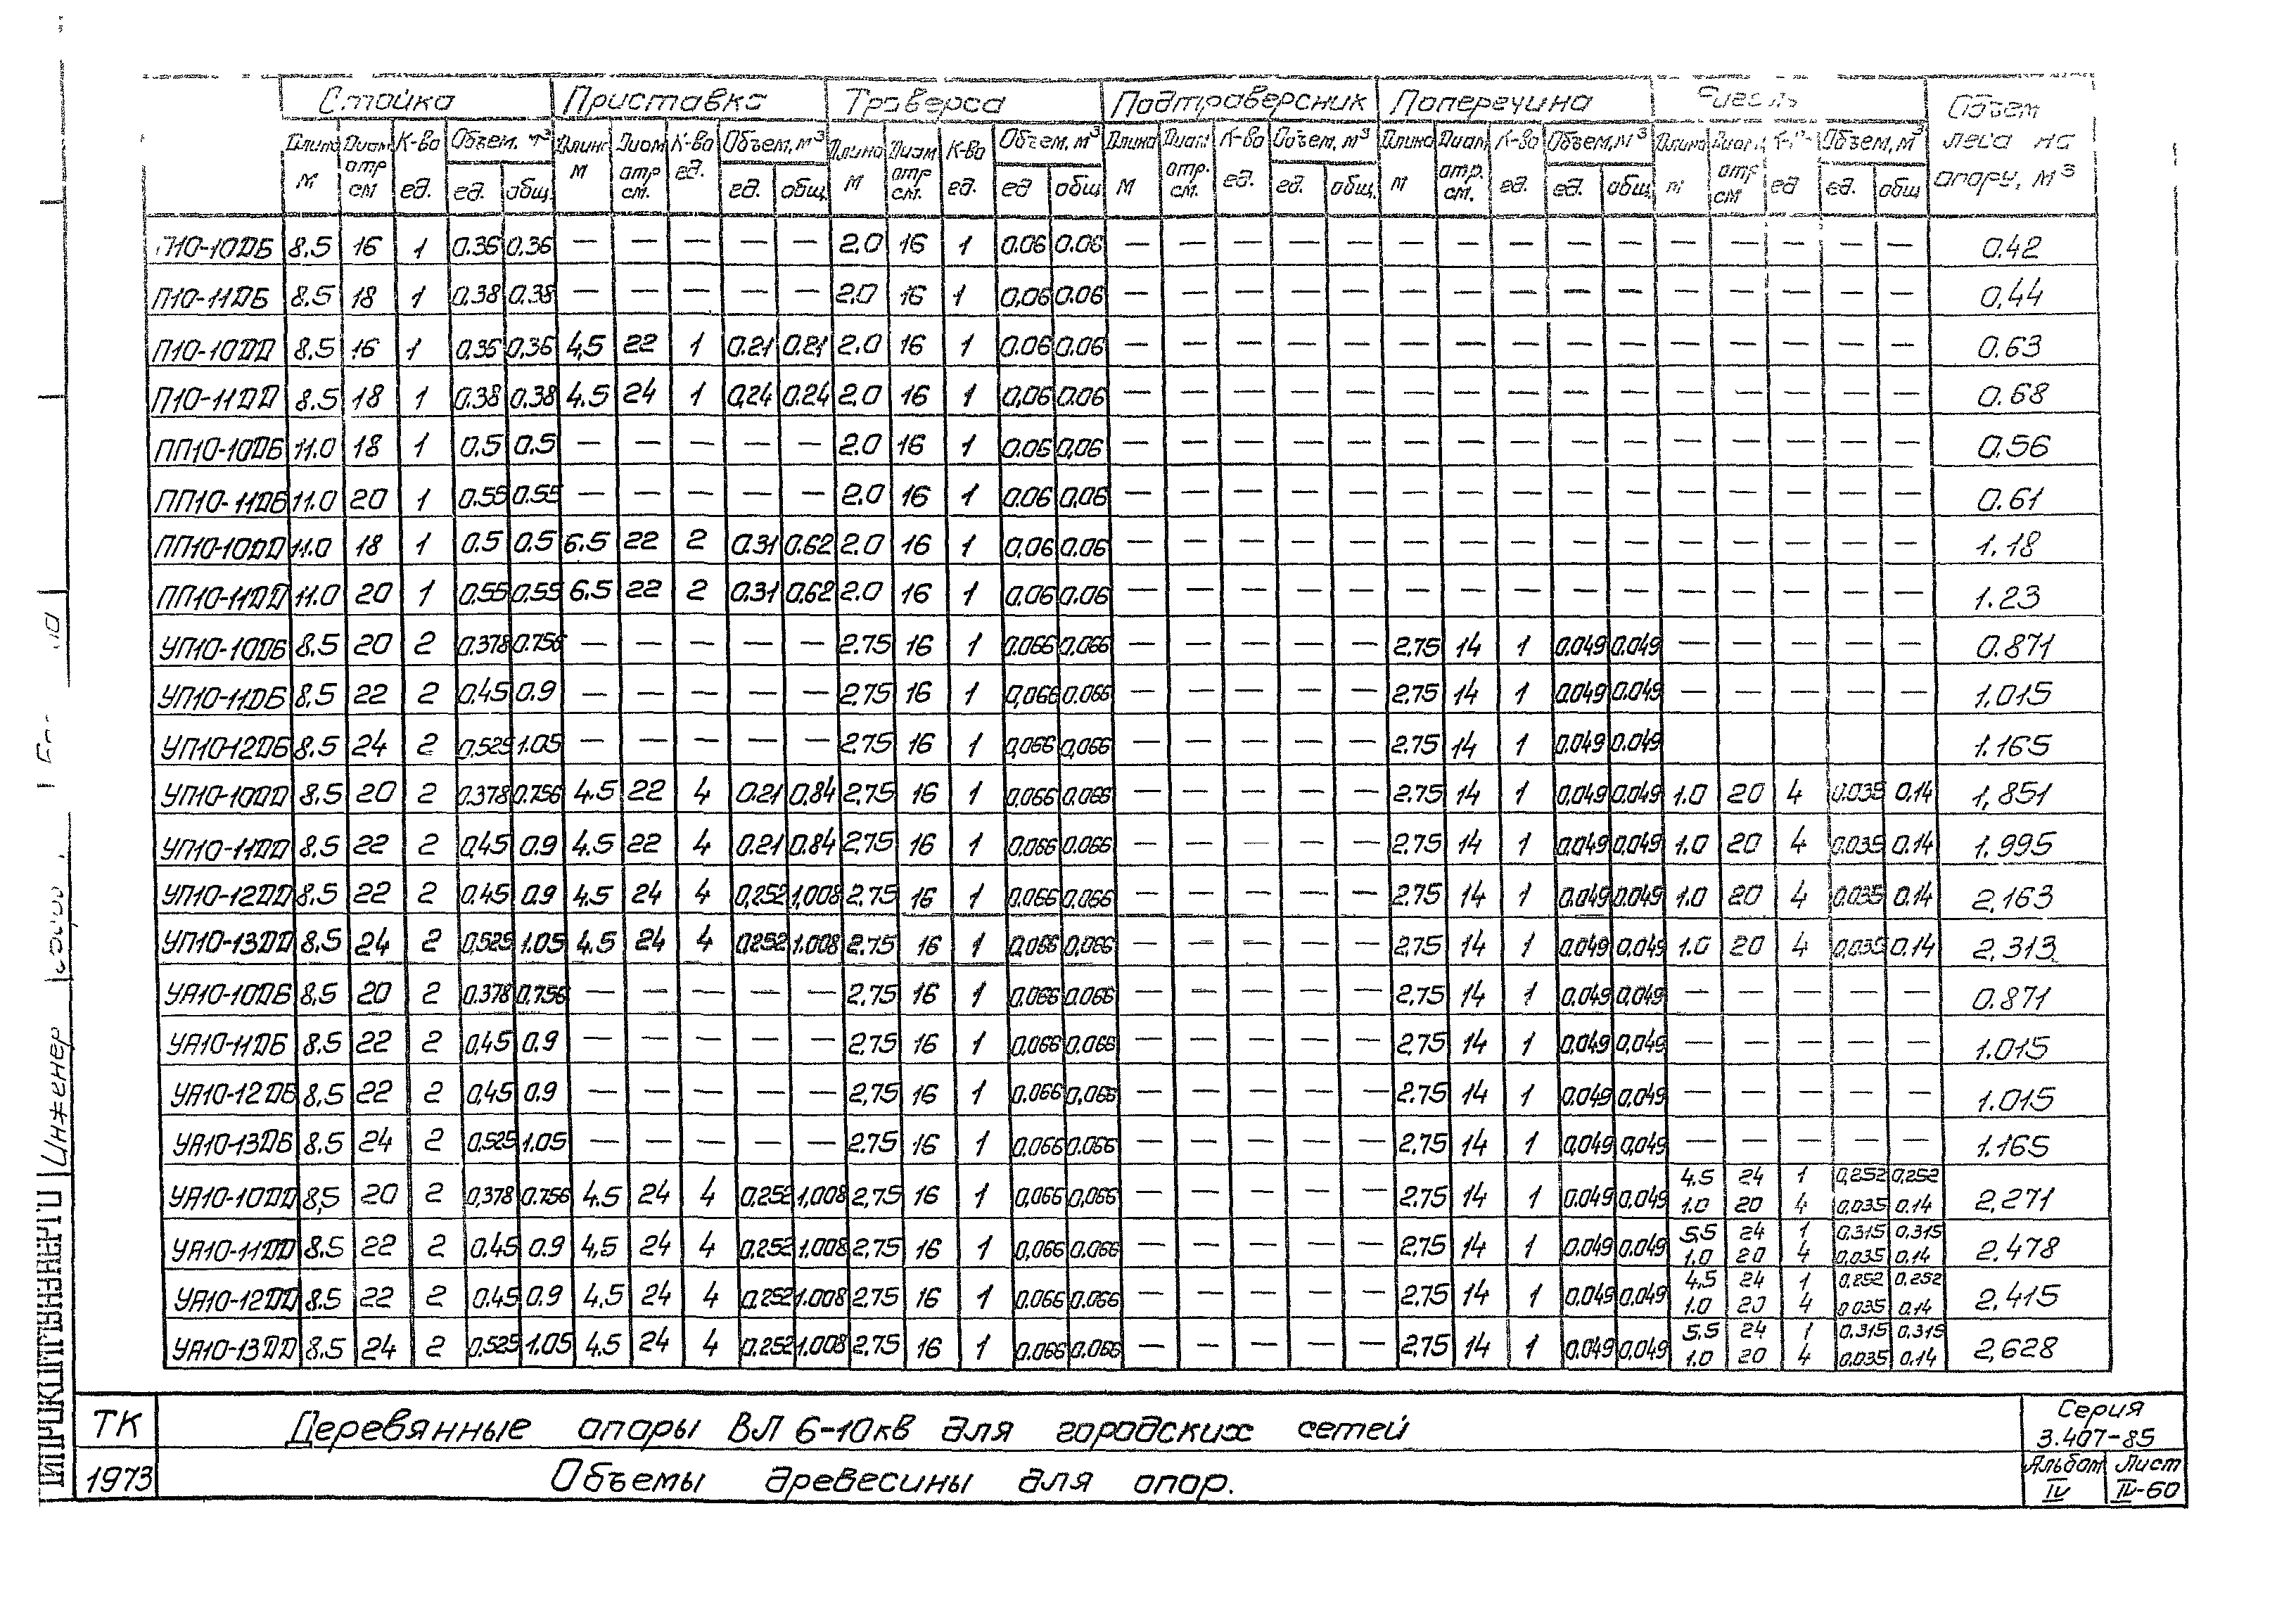 Стойка Приставка Траверса Подтраверсник Поперечина Объем леса на опору, м³
Длина м Диам отр см К-во ед. Объем, м³ ед. общ. Длина м Диам отр см. К-во ед. Объем, м³ ед. общ. Длина м Диам отр см. К-во ед. Объем, м³ ед общ Длина м Диам отр. см. К-во ед. Объем, м³ ед. общ. Длина м Диам отр. см. К-во ед. Объем, м³ ед. общ. Длина м Диам. отр см К-во ед Объем, м³ ед. общ
П10-10ДБ 8.5 16 1 0.36 0.36 — — — — — 2.0 16 1 0.06 0.06 — — — — — — — — — — — — — — — 0.42
П10-11ДБ 8.5 18 1 0,38 0.38 — — — — — 2.0 16 1 0,06 0.06 — — — — — — — — — — — — — — — 0,44
П10-10ДД 8.5 16 1 0.36 0,36 4,5 22 1 0.21 0.21 2.0 16 1 0.06 0.06 — — — — — — — — — — — — — — — 0.63
П10-11ДД 8.5 18 1 0.38 0.38 4.5 24 1 0,24 0.24 2.0 16 1 0,06 0.06 — — — — — — — — — — — — — — — 0.68
ПП10-10ДБ 11.0 18 1 0.5 0.5 — — — — — 2.0 16 1 0.06 0,06 — — — — — — — — — — — — — — — 0.56
ПП10-11ДБ 11.0 20 1 0.55 0.55 — — — — — 2.0 16 1 0.06 0,06 — — — — — — — — — — — — — — — 0.61
ПП10-10ДД 11.0 18 1 0.5 0.5 6.5 22 2 0.31 0.62 2.0 16 1 0,06 0.06 — — — — — — — — — — — — — — — 1.18
ПП10-11ДД 11.0 20 1 0.55 0.55 6.5 22 2 0.31 0.62 2.0 16 1 0.06 0.06 — — — — — — — — — — — — — — — 1.23
УП10-10ДБ 8.5 20 2 0.378 0.756 — — — — — 2.75 16 1 0.066 0,066 — — — — — 2.75 14 1 0.049 0.049 — — — — — 0.871
УП10-11ДБ 8.5 22 2 0,45 0.9 — — — — — 2.75 16 1 0,066 0.066 — — — — — 2.75 14 1 0.049 0.049 — — — — — 1.015
УП10-12ДБ 8.5 24 2 0,525 1.05 — — — — — 2.75 16 1 0,066 0,066 — — — — — 2.75 14 1 0.049 0.049 1.165
УП10-10ДД 8.5 20 2 0.378 0.756 4.5 22 4 0.21 0.84 2.75 16 1 0,066 0.066 — — — — — 2.75 14 1 0,049 0.049 1.0 20 4 0.035 0.14 1,851
УП10-11ДД 8.5 22 2 0,45 0.9 4.5 22 4 0.21 0.84 2.75 16 1 0.066 0.066 — — — — — 2.75 14 1 0.049 0.049 1.0 20 4 0.035 0.14 1.995
УП10-12ДД 8.5 22 2 0.45 0.9 4.5 24 4 0,252 1,008 2.75 16 1 0.066 0.066 — — — — — 2.75 14 1 0.049 0.049 1.0 20 4 0.035 0.14 2,163
УП10-13ДД 8.5 24 2 0,525 1.05 4.5 24 4 0.252 1.008 2.75 16 1 0,066 0,066 — — — — — 2.75 14 1 0,049 0,049 1.0 20 4 0,035 0.14 2,313
УА10-10ДБ 8,5 20 2 0.378 0.756 — — — — — 2,75 16 1 0.066 0.066 — — — — — 2,75 14 1 0.049 0,049 — — — — — 0.871
УА10-11ДБ 8.5 22 2 0,45 0.9 — — — — — 2.75 16 1 0,066 0.066 — — — — — 2,75 14 1 0,049 0,049 — — — — — 1.015
УА10-12ДБ 8.5 22 2 0,45 0.9 — — — — — 2,75 16 1 0.066 0,066 — — — — — 2.75 14 1 0.049 0,049 — — — — — 1.015
УА10-13ДБ 8.5 24 2 0,525 1.05 — — — — — 2.75 16 1 0,066 0.066 — — — — — 2.75 14 1 0,049 0,049 — — — — — 1.165
УА10-10ДД 8,5 20 2 0,378 0.756 4.5 24 4 0.252 1,008 2,75 16 1 0,066 0,066 — — — — — 2.75 14 1 0.049 0,049 4,5 24 1 0,252 0,252 2,271
1.0 20 4 0,035 0.14
УА10-11ДД 8.5 22 2 0.45 0.9 4,5 24 4 0.252 1.008 2,75 16 1 0,066 0.066 — — — — — 2.75 14 1 0,049 0,049 5,5 24 1 0.315 0,315 2.478
1.0 20 4 0,035 0.14
УА10-12ДД 8.5 22 2 0.45 0.9 4.5 24 4 0.252 1.008 2.75 16 1 0.066 0.066 — — — — — 2.75 14 1 0.049 0,049 4,5 24 1 0.252 0,252 2.415
1.0 20 4 0.035 0.14
УА10-13ДД 8.5 24 2 0,525 1.05 4.5 24 4 0.252 1.008 2,75 16 1 0.066 0.066 — — — — — 2.75 14 1 0.049 0,049 5,5 24 1 0.315 0,315 2,628
1.0 20 4 0,035 0.14
Инженер
ТК Деревянные опоры ВЛ 6-10кв для городских сетей
1973 Объемы древесины для опор.
Серия
3.407-85
Альбом Лист
IV IV-60